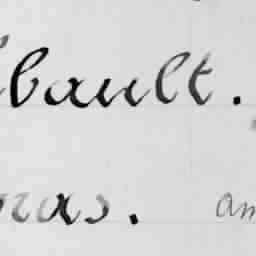 bault.
nas. am